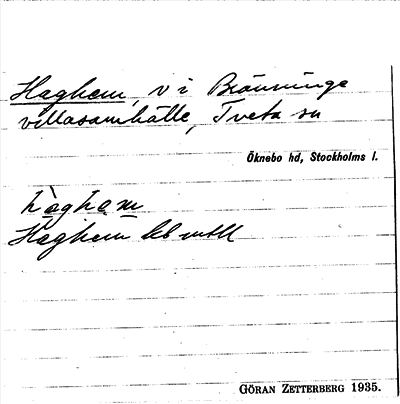 Haghem, v i Bränninge
villasamhälle, Tveta sn
Öknebo hd, Stockholms l.
hàghem
Haghem
GÖRAN ZETTERBERG 1935.